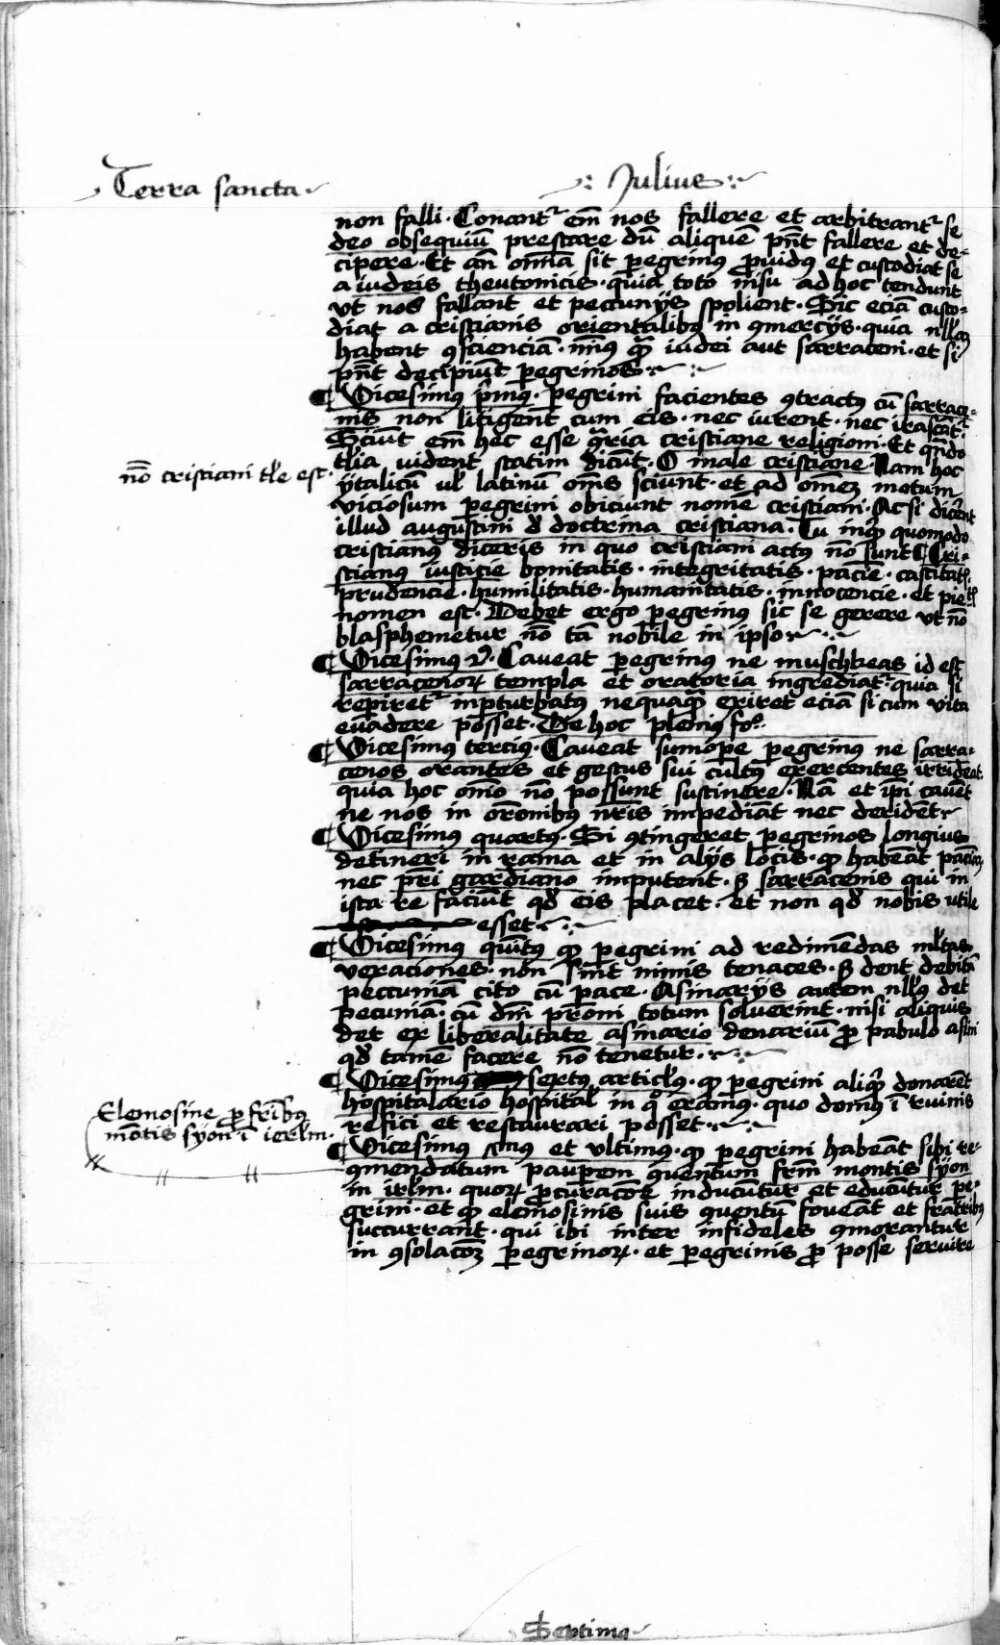 Terra sancta
Julius
non falli. Conant᷑ em̄ nos fallere et arbitrant᷑ se
deo obsequiū prestare dū aliquē pn̄t fallere et de-
cipere. Et an̄ om̄ia sit ꝑegrinꝯ ꝓuidus et custodiat se
a iudeis theutonicis. quia toto nisu ad hoc tendunt
vt nos fallant et peccunijs spolient. Sic eciā custo-
diat a cristianis orientalibꝯ in ꝯmercijs. quia nll̄aꝫ
habent ꝯscienciā. minꝯ quā iudei aut sarraceni. et si
pn̄t decipiūt ꝑegrinos.
¶ Vicesimꝯ pͥmꝯ. ꝑegrini facientes ꝯtractꝯ cū sarrace-
nis non litigent cum eis. nec iurent. nec irascāt᷑.
Sciūt em̄ hec esse ꝯͣria cristiane religioni. Et qn̄do
tl̄ia uident statim dicūt. O male cristiane. Nam hoc
ytalicum ul̄ latinū om̄s sciunt. et ad omeꝫ motum
viciosum ꝑegrini obiciunt nomē cristiani. Ac si dicerēt
illud augustini d̓ doctrina cristiana. Tu inqͥ quomodo
cristianꝯ diceris in quo cristiani actꝯ nō sunt ¶ Cri-
stianꝯ iusticie bonitatis. integritatis. pacīe. castitat̄.
prudencie. humilitatis. humanitatis. innocencie. et piet̄
nomen est. Debet ergo ꝑegrinꝯ sic se gerere vt nō
blasphemetur nō tā nobile in ipso.
nō cristiani tl̄e est.
¶ Vicesimꝯ 2ꝯ. Caueat ꝑegrinꝯ ne muschkeas id est
sarracenoꝝ templa et oratoria ingrediat᷑. quia si
repiret᷑ inꝑturbatꝯ nequaqͣ exiret eciā si cum vita
euadere posset. De hoc pleniꝯ fo.
¶ Vicesimꝯ terciꝯ. Caueat sumoꝑe ꝑegrinꝯ ne sarra-
cenos orantes et gestus sui cultꝯ exercentes irrideat.
quia hoc om̄o nō possunt sustinere. Nā et ip̄i cauēt
ne nos in or̄onibꝯ nr̄is impediāt nec deridēt.
¶ Vicesimꝯ quartꝯ. Si ꝯtingeret ꝑegrinos longius
detineri in rama et in alijs locis. ꝙ habeāt paciāꝫ
nec pr̄i gardiano imputent. sꝫ sarracenis qui in
ista re faciūt qd̓ eis placet. et non qd̓ nobis utile
esset.
¶ Vicesimꝯ quītꝯ ꝙ ꝑegrini ad redimēdas ml̄tas
vexaciones. non sint nimis tenaces. sꝫ dent debitā
peccuniam cito cū pace. Asinarijs autem nll̄ꝯ det
pecuniā. cū dn̄i pr̄oni totum soluerint. nisi aliquis
det ex liberalitate asinario denariū ꝓ pabulo asini
qd̓ tamē facere nō tenetur.
¶ Vicesimꝯ sextꝯ articl̄ꝯ. ꝙ ꝑegrini aliqͥd donarēt
hospitalario hospital̄ in qͦ eramꝯ. quo domꝯ ī ruinis
refici et restaurari posset.
Elemosine ꝓ fr̄ibꝯ
mōtis syon ī ierl̄m.
¶ Vicesimꝯ 7mꝯ et vltimꝯ. ꝙ ꝑegrini habeāt sibi re-
ꝯmendatum pauperem ꝯuentum fr̄m montis syon
in irl̄m. quoꝝ ꝓcuracōe inducūtur et educūtur ꝑe-
grini. et ꝙ elemosinis suis ꝯuentū foueāt et fratribꝯ
succurrant. qui ibi inter infideles ꝯmorantur
in ꝯsolacōeꝫ ꝑegrinoꝝ. et ꝑegrinis ꝓ posse seruire
Septima